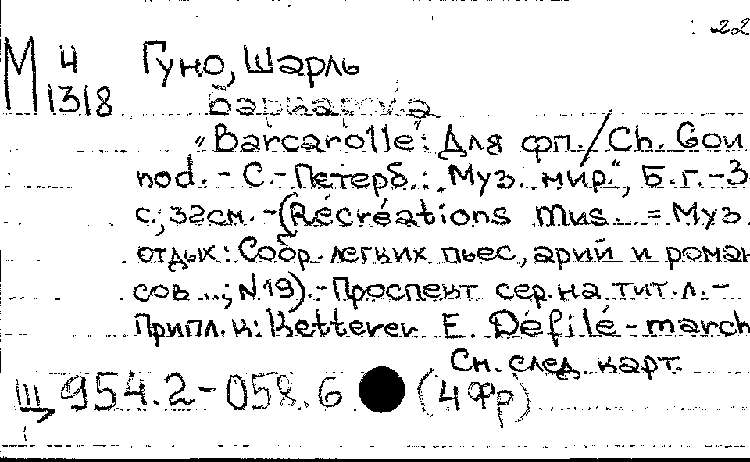 22
М 4 Гуно, Шарль
1318 Баркарола
"Barcarolle": Для фп./Ch. Gou
nod. - С.-Петерб.: "Муз. мир", Б.г. - 3
с.; 32см. - (Récréations mus... = Муз.
отдых: Собр. легких пьес, арий и роман
сов...; N19). - Проспект сер. на тит. л. -
Припл. к: Ketterer E. Défilé-march
См. след. карт.
Ш 954.2-058.6 (4 Фр)